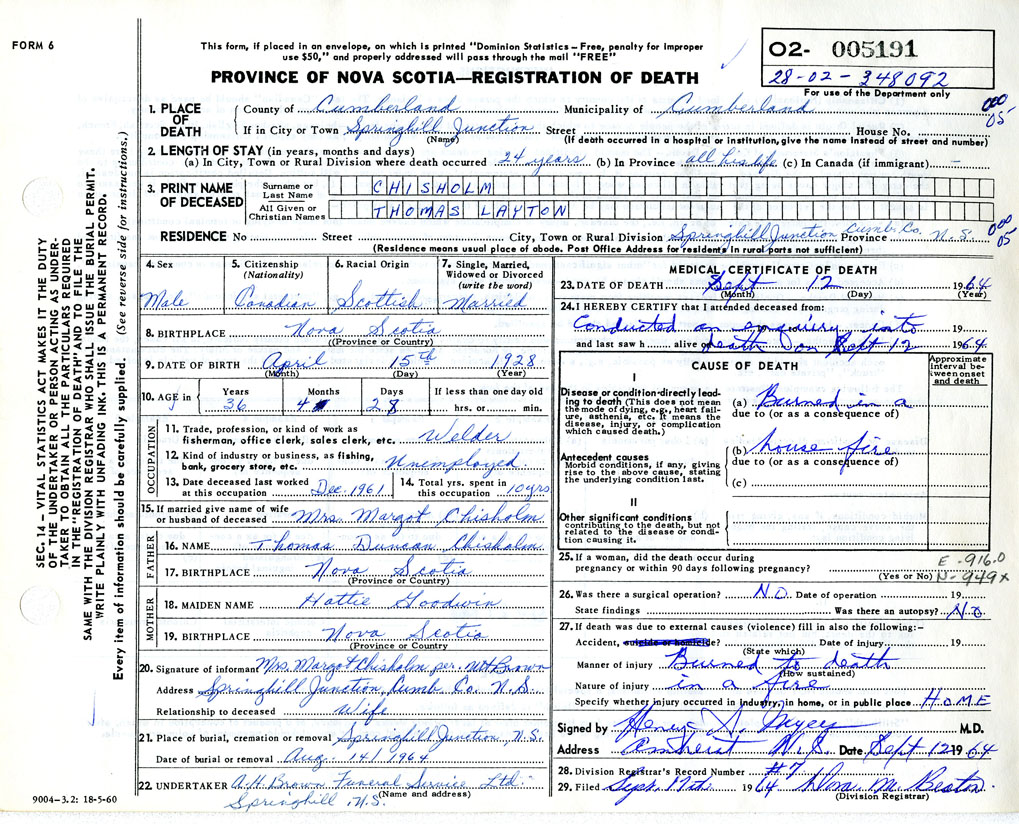 FORM 6
This form, if placed in an envelope, on which is printed "Dominion Statistics – Free, penalty for improper
use $50," and properly addressed will pass through the mail "FREE"
PROVINCE OF NOVA SCOTIA—REGISTRATION OF DEATH
O2- 005191
28-02-348092
For use of the Department only
1. PLACE OF DEATH
County of Cumberland Municipality of Cumberland
000
05
If in City or Town Springhill Junction Street House No.
(Name) (If death occurred in a hospital or institution, give the name instead of street and number)
2. LENGTH OF STAY (in years, months and days)
(a) In City, Town or Rural Division where death occurred 24 years (b) In Province all his life (c) In Canada (if immigrant) -
3. PRINT NAME OF DECEASED
Surname or Last Name CHISHOLM
All Given or Christian Names THOMAS LAYTON
RESIDENCE No Street City, Town or Rural Division Springhill Junction Cumb. Co. Province N.S.
000
05
(Residence means usual place of abode. Post Office Address for residents in rural parts not sufficient)
SEC. 14 – VITAL STATISTICS ACT MAKES IT THE DUTY
OF THE UNDERTAKER OR PERSON ACTING AS UNDER-
TAKER TO OBTAIN ALL THE PARTICULARS REQUIRED
IN THE "REGISTRATION OF DEATH" AND TO FILE THE
SAME WITH THE DIVISION REGISTRAR WHO SHALL ISSUE THE BURIAL PERMIT.
WRITE PLAINLY WITH UNFADING INK. THIS IS A PERMANENT RECORD.
Every item of information should be carefully supplied. (See reverse side for instructions.)
4. Sex
Male
5. Citizenship (Nationality)
Canadian
6. Racial Origin
Scottish
7. Single, Married, Widowed or Divorced (write the word)
Married
8. BIRTHPLACE Nova Scotia
(Province or Country)
9. DATE OF BIRTH April 15th 1928
(Month) (Day) (Year)
10. AGE in Years Months Days If less than one day old
36 4 28 hrs. or min.
OCCUPATION
11. Trade, profession, or kind of work as
fisherman, office clerk, sales clerk, etc. Welder
12. Kind of industry or business, as fishing,
bank, grocery store, etc. Unemployed.
13. Date deceased last worked
at this occupation Dec. 1961
14. Total yrs. spent in
this occupation 10 yrs
15. If married give name of wife
or husband of deceased Mrs. Margot Chisholm
FATHER
16. NAME Thomas Duncan Chisholm
17. BIRTHPLACE Nova Scotia
(Province or Country)
MOTHER
18. MAIDEN NAME Hattie Goodwin
19. BIRTHPLACE Nova Scotia
(Province or Country
20. Signature of informant Mrs. Margot Chisholm per. WH Brown
Address Springhill Junction Cumb. Co. N.S.
Relationship to deceased Wife
21. Place of burial, cremation or removal Springhill Junction, N.S.
Date of burial or removal Aug. 14 1964
22. UNDERTAKER A.H. Brown Funeral Service Ltd.
(Name and address)
Springhill N.S.
9004-3.2: 18-5-60
MEDICAL CERTIFICATE OF DEATH
23. DATE OF DEATH Sept 12 1964
(Month) (Day) (Year)
24. I HEREBY CERTIFY that I attended deceased from:
Conducted an enquiry into 19
and last saw h alive on death on Sept 12 1964.
CAUSE OF DEATH
Approximate Interval between onset and death
I
Disease or condition directly lead-
ing to death (This does not mean
the mode of dying, e.g., heart fail-
ure, asthenia, etc. It means the
disease, injury, or complication
which caused death.)
(a) Burned in a
due to (or as a consequence of)
Antecedent causes
Morbid conditions, if any, giving
rise to the above cause, stating
the underlying condition last.
(b) house fire
due to (or as a consequence of)
(c)
II
Other significant conditions
contributing to the death, but not
related to the disease or condi-
tion causing it.
25. If a woman, did the death occur during
pregnancy or within 90 days following pregnancy?
(Yes or No)
E-916.0
N-949x
26. Was there a surgical operation? No. Date of operation 19
State findings Was there an autopsy? No
27. If death was due to external causes (violence) fill in also the following:-
Accident, suicide or homicide? Date of injury 19
(State which)
Manner of injury Burned to death
(How sustained)
Nature of injury in a fire
Specify whether injury occurred in industry, in home, or in public place HOME
Signed by Henry S. M.D.
Address Amherst N.S. Date Sept 12 1964
28. Division Registrar's Record Number #7
29. Filed Sept. 17th. 1964 M. Beaton.
(Division Registrar)